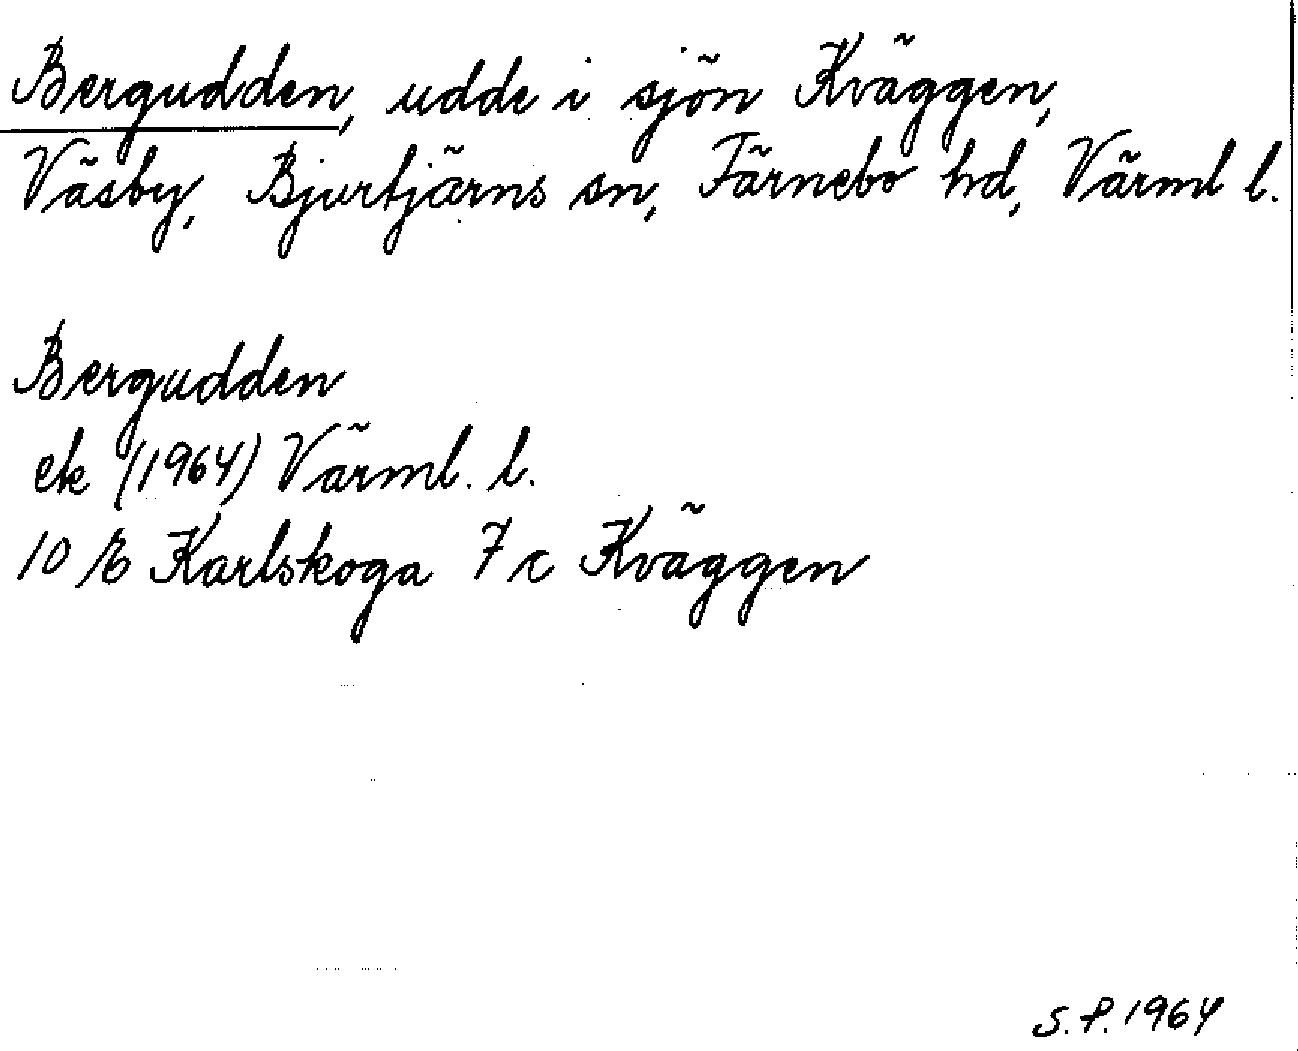 Bergudden, udde i sjön Kväggen,
Väsby, Bjurtjärns sn, Färnebo hd, Värml l.
Bergudden
ek (1964) Värml. l.
10 E Karlskoga 7 c Kväggen
S.P. 1964